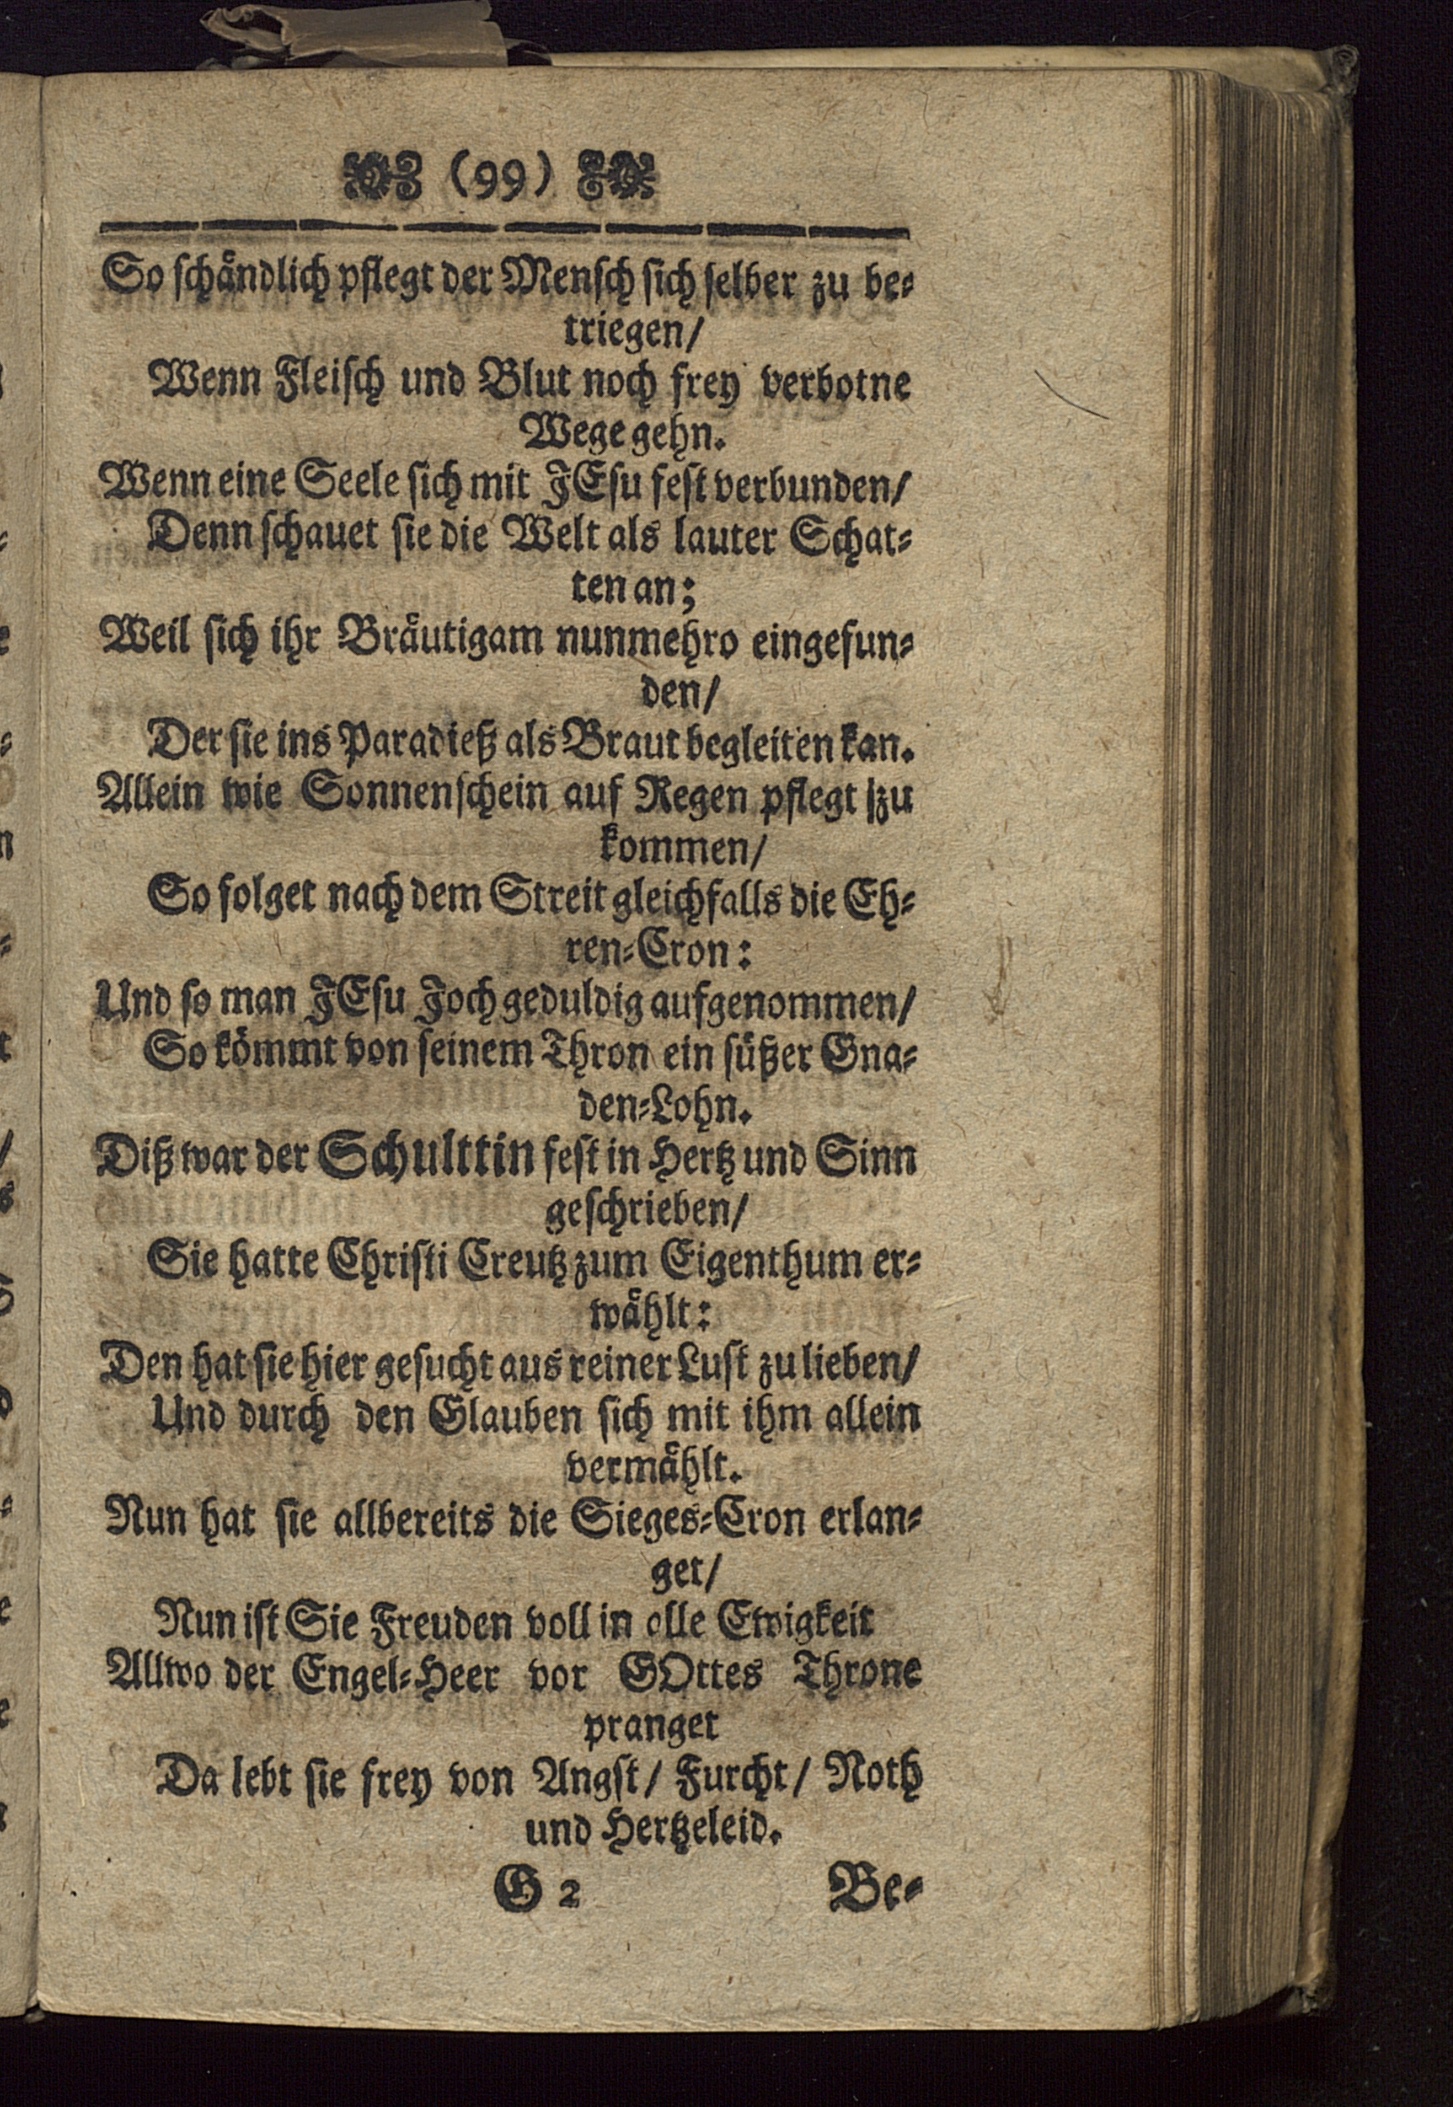 (99)
So schändlich pflegt der Mensch sich selber zu be-
triegen/
Wenn Fleisch und Blut noch frey verbotne
Wege gehn.
Wenn eine Seele sich mit JEsu fest verbunden/
Denn schauet sie die Welt als lauter Schat-
ten an;
Weil sich ihr Bräutigam nunmehro eingefun-
den/
Der sie ins Paradieß als Braut begleiten kan.
Allein wie Sonnenschein auf Regen pflegt zu
kommen/
So folget nach dem Streit gleichfalls die Eh-
ren-Cron:
Und so man JEsu Joch geduldig aufgenommen/
So kömmt von seinem Thron ein süßer Gna-
den-Lohn.
Diß war der Schulttin fest in Hertz und Sinn
geschrieben/
Sie hatte Christi Creutz zum Eigenthum er-
wählt:
Den hat sie hier gesucht aus reiner Lust zu lieben/
Und durch den Glauben sich mit ihm allein
vermählt.
Nun hat sie allbereits die Sieges-Cron erlan-
get/
Nun ist Sie Freuden voll in alle Ewigkeit
Allwo der Engel-Heer vor GOttes Throne
pranget
Da lebt sie frey von Angst/ Furcht/ Noth
und Hertzeleid.
G 2 Be-